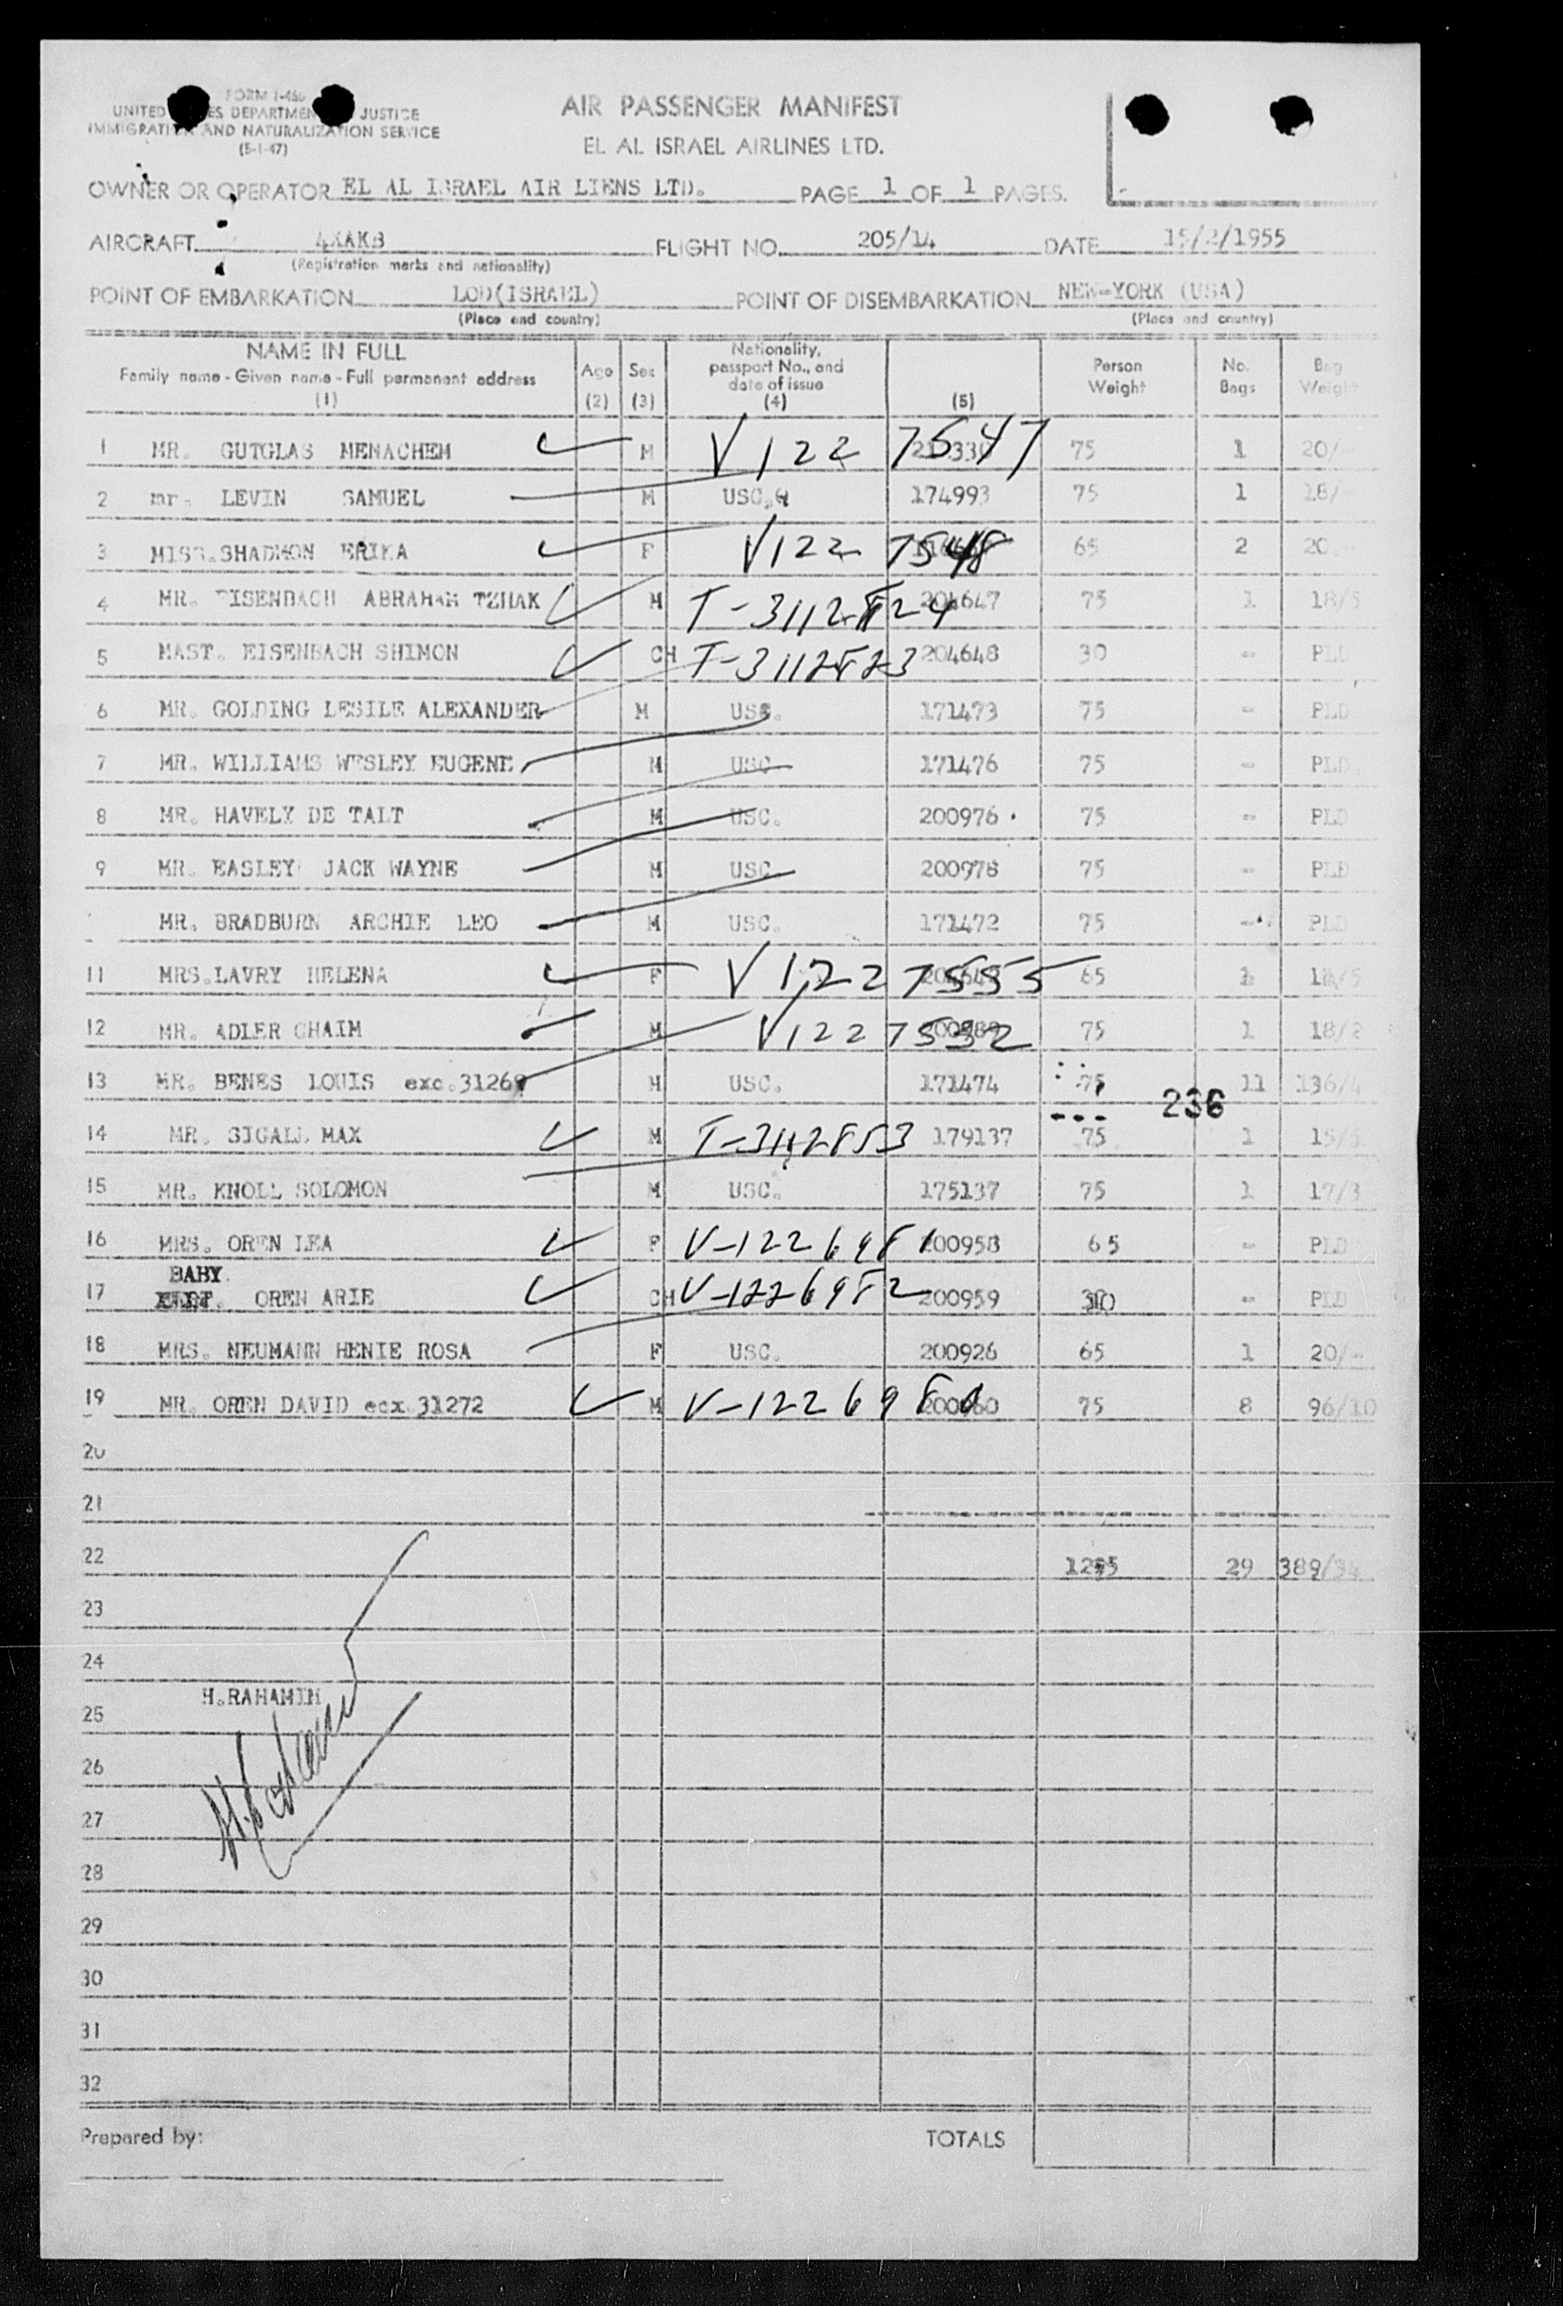 FORM I-466
UNITED STATES DEPARTMENT OF JUSTICE
IMMIGRATION AND NATURALIZATION SERVICE
(5-1-47)
AIR PASSENGER MANIFEST
EL AL ISRAEL AIRLINES LTD.
OWNER OR OPERATOR EL AL ISRAEL AIR LIENS LTD. PAGE 1 OF 1 PAGES.
AIRCRAFT 4XAKB FLIGHT NO. 205/14 DATE 15/2/1955
(Registration marks and nationality)
POINT OF EMBARKATION LOD(ISRAEL) POINT OF DISEMBARKATION NEW-YORK (USA)
(Place and country) (Place and country)
NAME IN FULL Age Sex Nationality, passport No., and date of issue Person Weight No. Bags Bag Weight
Family name - Given name - Full permanent address
(1) (2) (3) (4) (5)
1 MR. GUTGLAS MENACHEM M V122 7547 75 1 20/-
2 mr. LEVIN SAMUEL M USC. 174993 75 1 18/
3 MISS.SHADMON ERIKA F V122 7548 65 2 20
4 MR. EISENBACH ABRAHAM TZHAK M T-3112824 204647 75 1 18/5
5 MAST. EISENBACH SHIMON CH T-3112823 204648 30 - PLD
6 MR. GOLDING LESILE ALEXANDER M USC. 171473 75 - PLD
7 MR. WILLIAMS WESLEY EUGENE M USC 171476 75 - PLD.
8 MR. HAVELY DE TALT M USC. 200976 . 75 - PLD
9 MR. EASLEY JACK WAYNE M USC 200978 75 - PLD
MR. BRADBURN ARCHIE LEO M USC. 171472 75 - PLD
11 MRS.LAVRY HELENA F V1227555 65 1 18/5
12 MR. ADLER CHAIM M V1227552 75 1 18/2
13 MR. BENES LOUIS exc.31269 M USC. 171474 75 11 136/4
236
14 MR. SIGALL MAX M T-3112853 179137 75 1 15/5
15 MR. KNOLL SOLOMON M USC. 175137 75 1 17/3
16 MRS. OREN LEA F V-1226981 200958 65 - PLD
BABY.
17 OREN ARIE CH V-1226982 200959 - PLD
18 MRS. NEUMANN HENIE ROSA F USC. 200926 65 1 20/-
19 MR. OREN DAVID ecx.31272 M V-1226980 200960 75 8 96/10
20
21
22 29 389/34
23
24
H.RAHAMIM
25
26
H. Rahamim
27
28
29
30
31
32
Prepared by: TOTALS